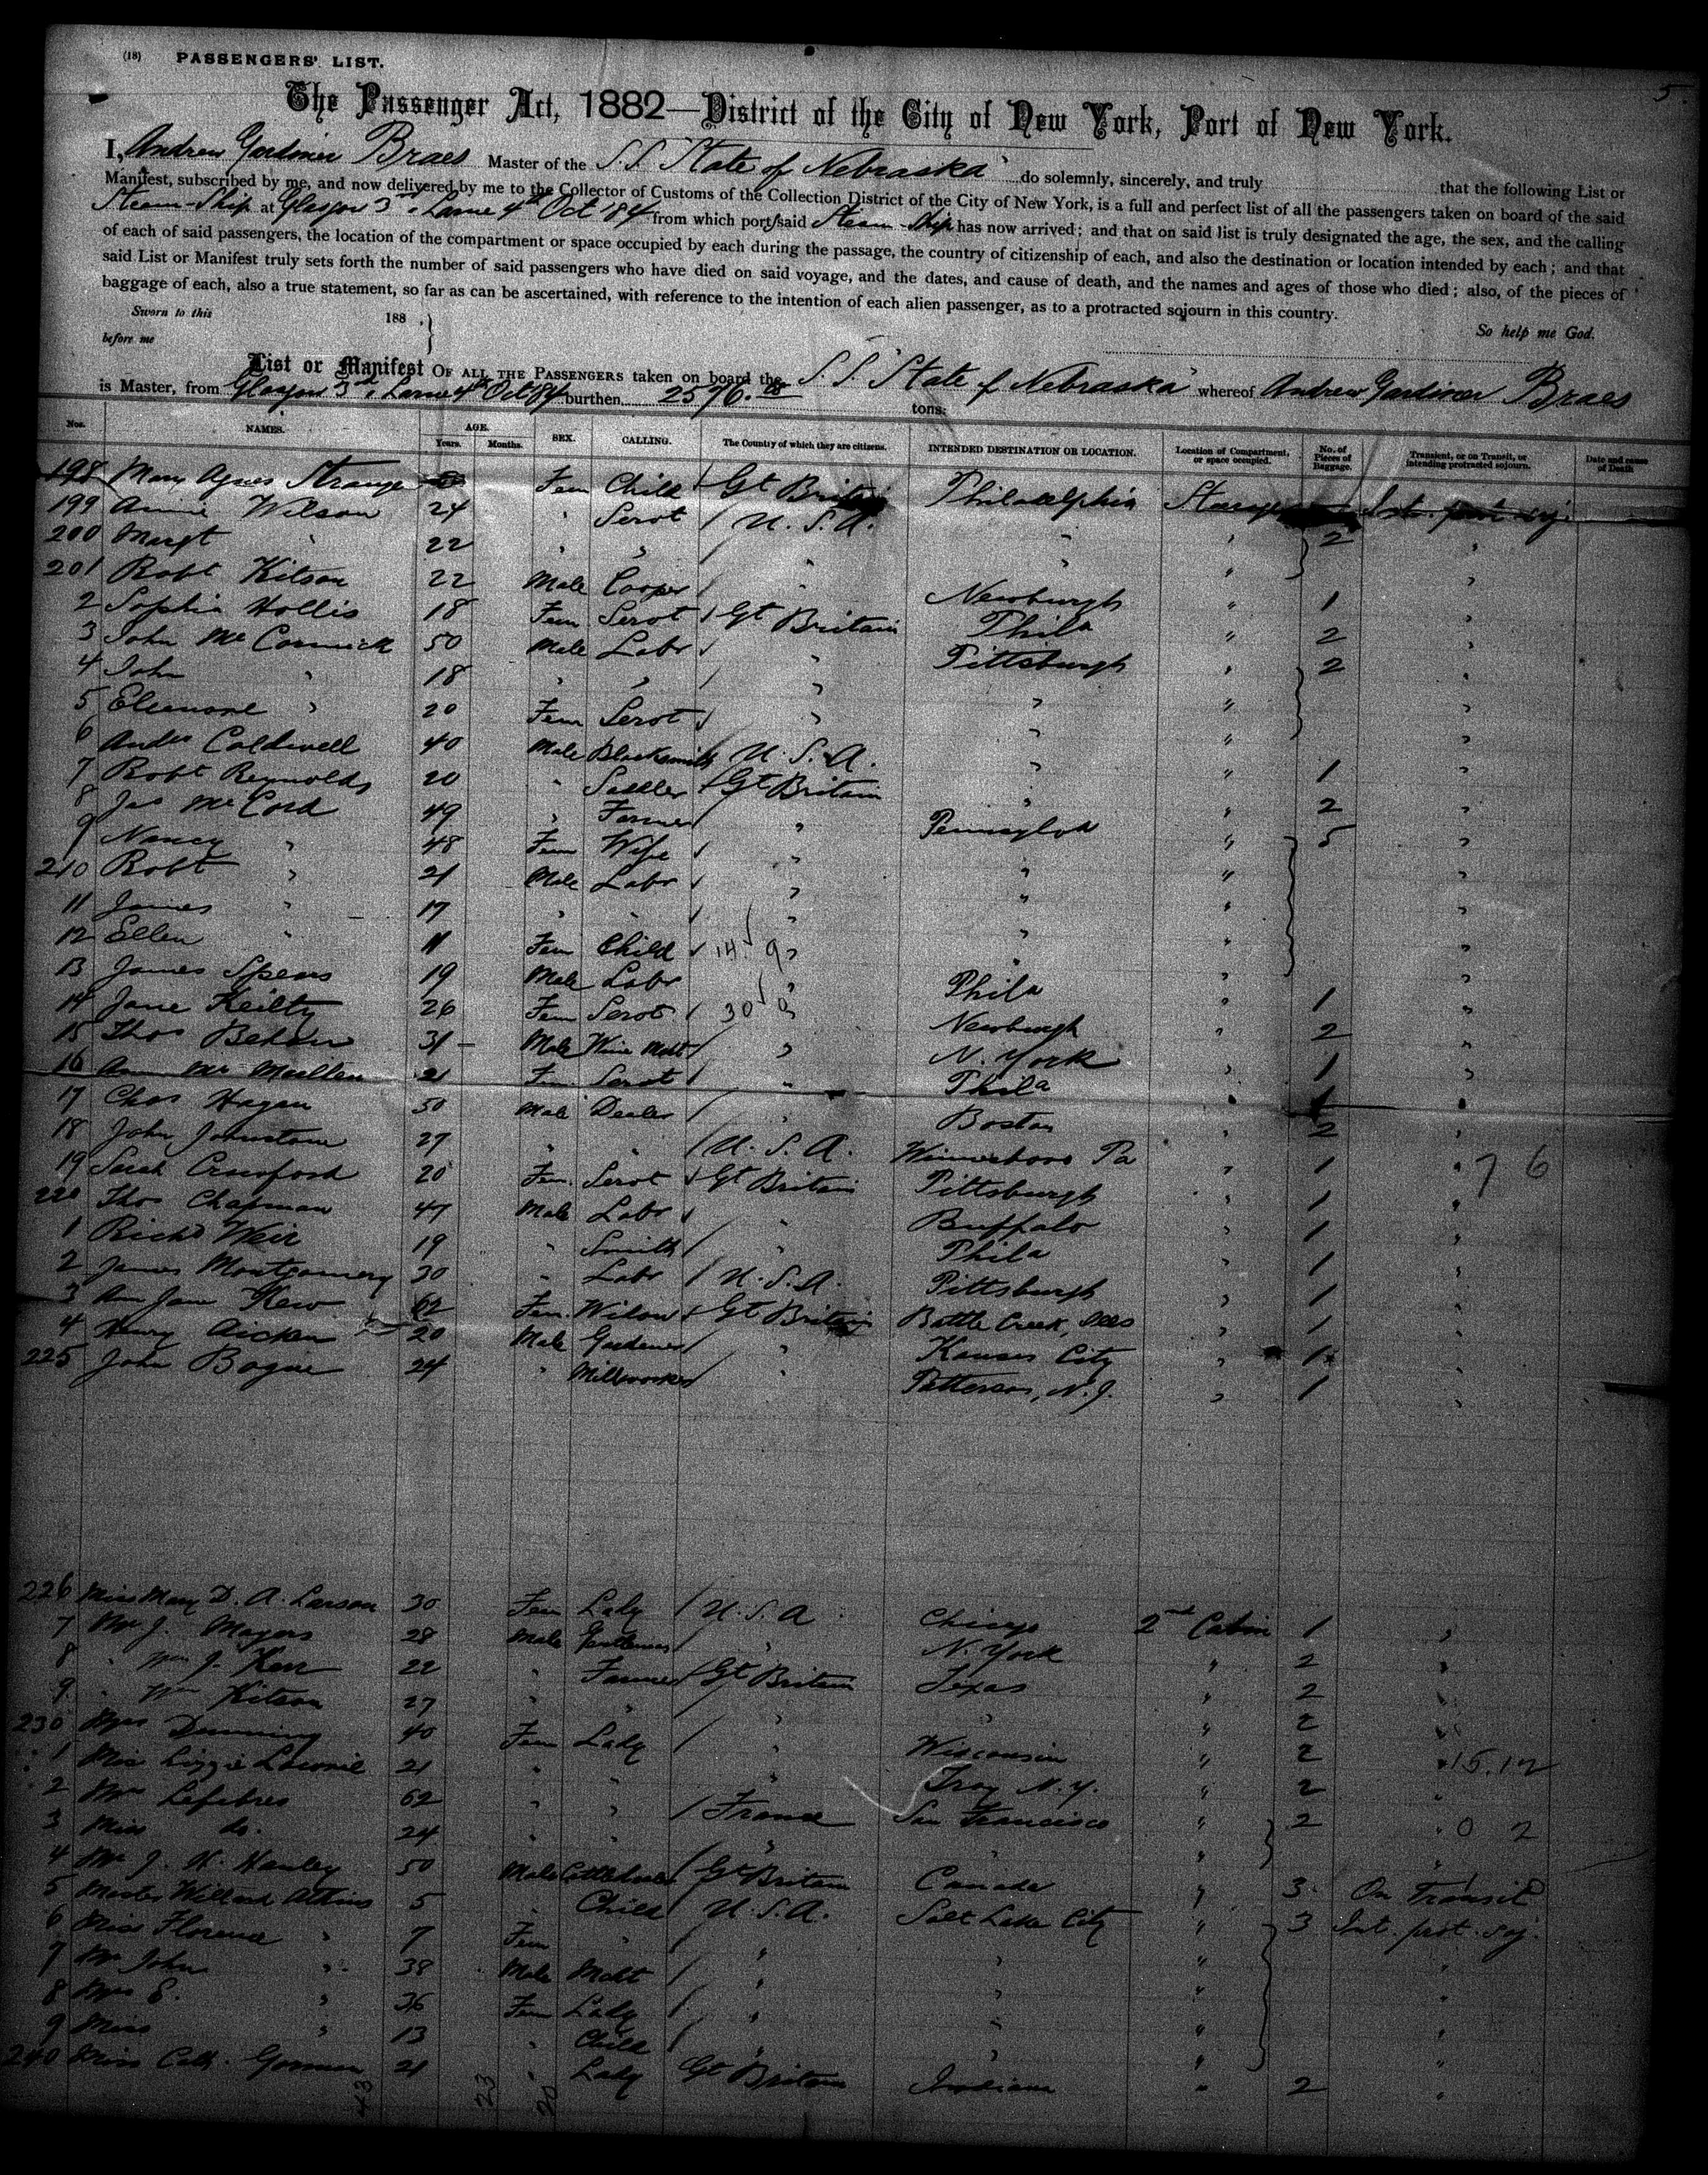 (18) PASSENGERS' LIST.
5
The Passenger Act, 1882—District of the City of New York, Port of New York.
I, Andrew Gardiner Braes Master of the S.S. "State of Nebraska" do solemnly, sincerely, and truly that the following List or
Manifest, subscribed by me, and now delivered by me to the Collector of Customs of the Collection District of the City of New York, is a full and perfect list of all the passengers taken on board of the said
Steam-Ship at Glasgow 3rd, Larne 4th Oct 1884 from which port/said Steam-Ship has now arrived; and that on said list is truly designated the age, the sex, and the calling
of each of said passengers, the location of the compartment or space occupied by each during the passage, the country of citizenship of each, and also the destination or location intended by each; and that
said List or Manifest truly sets forth the number of said passengers who have died on said voyage, and the dates, and cause of death, and the names and ages of those who died; also, of the pieces of
baggage of each, also a true statement, so far as can be ascertained, with reference to the intention of each alien passenger, as to a protracted sojourn in this country.
Sworn to this 188 . } So help me God.
before me
List or Manifest OF ALL THE PASSENGERS taken on board the S.S. "State of Nebraska" whereof Andrew Gardiner Braes
is Master, from Glasgow 3rd, Larne 4th Oct 84 burthen 2576. tons.
Nos. NAMES. AGE. Years. Months. SEX. CALLING. The Country of which they are citizens. INTENDED DESTINATION OR LOCATION. Location of Compartment, or space occupied. No. of Pieces of Baggage. Transient, or on Transit, or intending protracted sojourn. Date and cause of Death
198 Mary Agnes Strange Fem Child Gt Britain Philadelphia Steerage Int. prot. soj.
199 Annie Wilson 24 " Servt U.S.A. " " 2 "
200 Margt " 22 " " " " " "
201 Robt Kitson 22 Male Cooper " Newburgh " 1 "
2 Sophia Hollis 18 Fem Servt Gt Britain Phila " 2 "
3 John McCormick 50 Male Labr " Pittsburgh " 2 "
4 John " 18 " " " " " "
5 Eleanore " 20 Fem Servt " " " "
6 Andw Caldwell 40 Male Blacksmith U.S.A. " " 1 "
7 Robt Reynolds 20 " Saddler Gt Britain " " 2 "
8 Jas McCord 49 " Farmer " Pennsylva " 5 "
9 Nancy " 48 Fem Wife " " " "
210 Robt " 21 Male Labr " " " "
11 James " 17 " " " " " "
12 Ellen " 11 Fem Child " " " "
13 James Spears 19 Male Labr " Phila " 1 "
14 Jane Keilty 26 Fem Servt " Newburgh " 2 "
15 Thos Behan 31 Male Wine Mcht " N. York " 1 "
16 Ann McMullen 21 Fem Servt " Phila " 1 "
17 Chas Hagan 50 Male Dealer " Boston " 2 "
18 John Johnstone 27 " " U.S.A. Pa " 1 " 7 6
19 Sarah Crawford 20 Fem. Servt Gt Britain Pittsburgh " 1 "
220 Thos Chapman 47 Male Labr " Buffalo " 1 "
1 Richd Weir 19 " Smith " Phila " 1 "
2 James Montgomery 30 " Labr U.S.A. Pittsburgh " 1 "
3 Ann Jane Kew 62 Fem. Widow Gt Britain Battle Creek, " 1 "
4 Henry Aicken 20 Male Gardener " Kansas City " 1 "
225 John Bogue 24 " Millworker " Patterson, N.J. " 1 "
226 Miss Mary D. A. Larson 30 Fem Lady U.S.A. Chicago 2nd Cabin 1 "
7 Mr J. Mayers 28 Male Gentleman " N. York " 2 "
8 " Wm J. Kerr 22 " Farmer Gt Britain Texas " 2 "
9 " Wm Kitson 27 " " " " " 2 "
230 Mrs Dunning 40 Fem Lady " Wisconsin " 2 "
1 Miss Lizzie 21 " " " Troy N.Y. " 2 "
2 Mrs Lefebres 62 " " France San Francisco " 2 "
3 Miss do. 24 " " " " " "
4 Mr J. H. Hanley 50 Male Gt Britain Canada " 3 On Transit
5 Master Willard Atkins 5 " Child U.S.A. Salt Lake City " 3 Int. prot. soj.
6 Miss Florence " 7 Fem " " " " "
7 Mr John " 38 Male Mcht " " " "
8 Mrs E. " 36 Fem Lady " " " "
9 Miss " 13 " Child " " " "
240 Miss Cath. Gorman 21 " Lady Gt Britain Indiana " 2 "
43 23 20